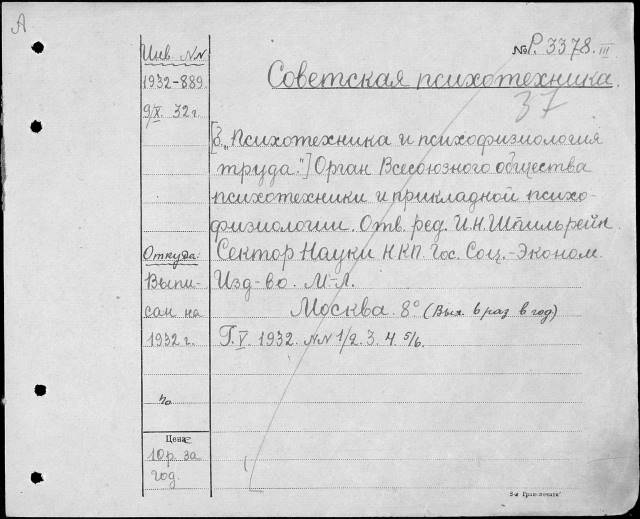 А
Инв. NN
1932-889.
9/X. 32 г.
№ Р. 3378. III
Советская психотехника.
37
[б. „Психотехника и психофизиология
труда."] Орган Всесоюзного общества
психотехники и прикладной психо-
физиологии. Отв. ред. И.Н. Шпильрейн.
Откуда:
Сектор Науки НКП. Гос. Соц.-Эконом.
Выпи-
Изд-во. М-Л.
сан на
Москва. 8° (Вых. 6 раз в год)
1932 г.
Г. V. 1932. NN 1/2. 3. 4. 5/6.
Цена:
10 р. за
год.